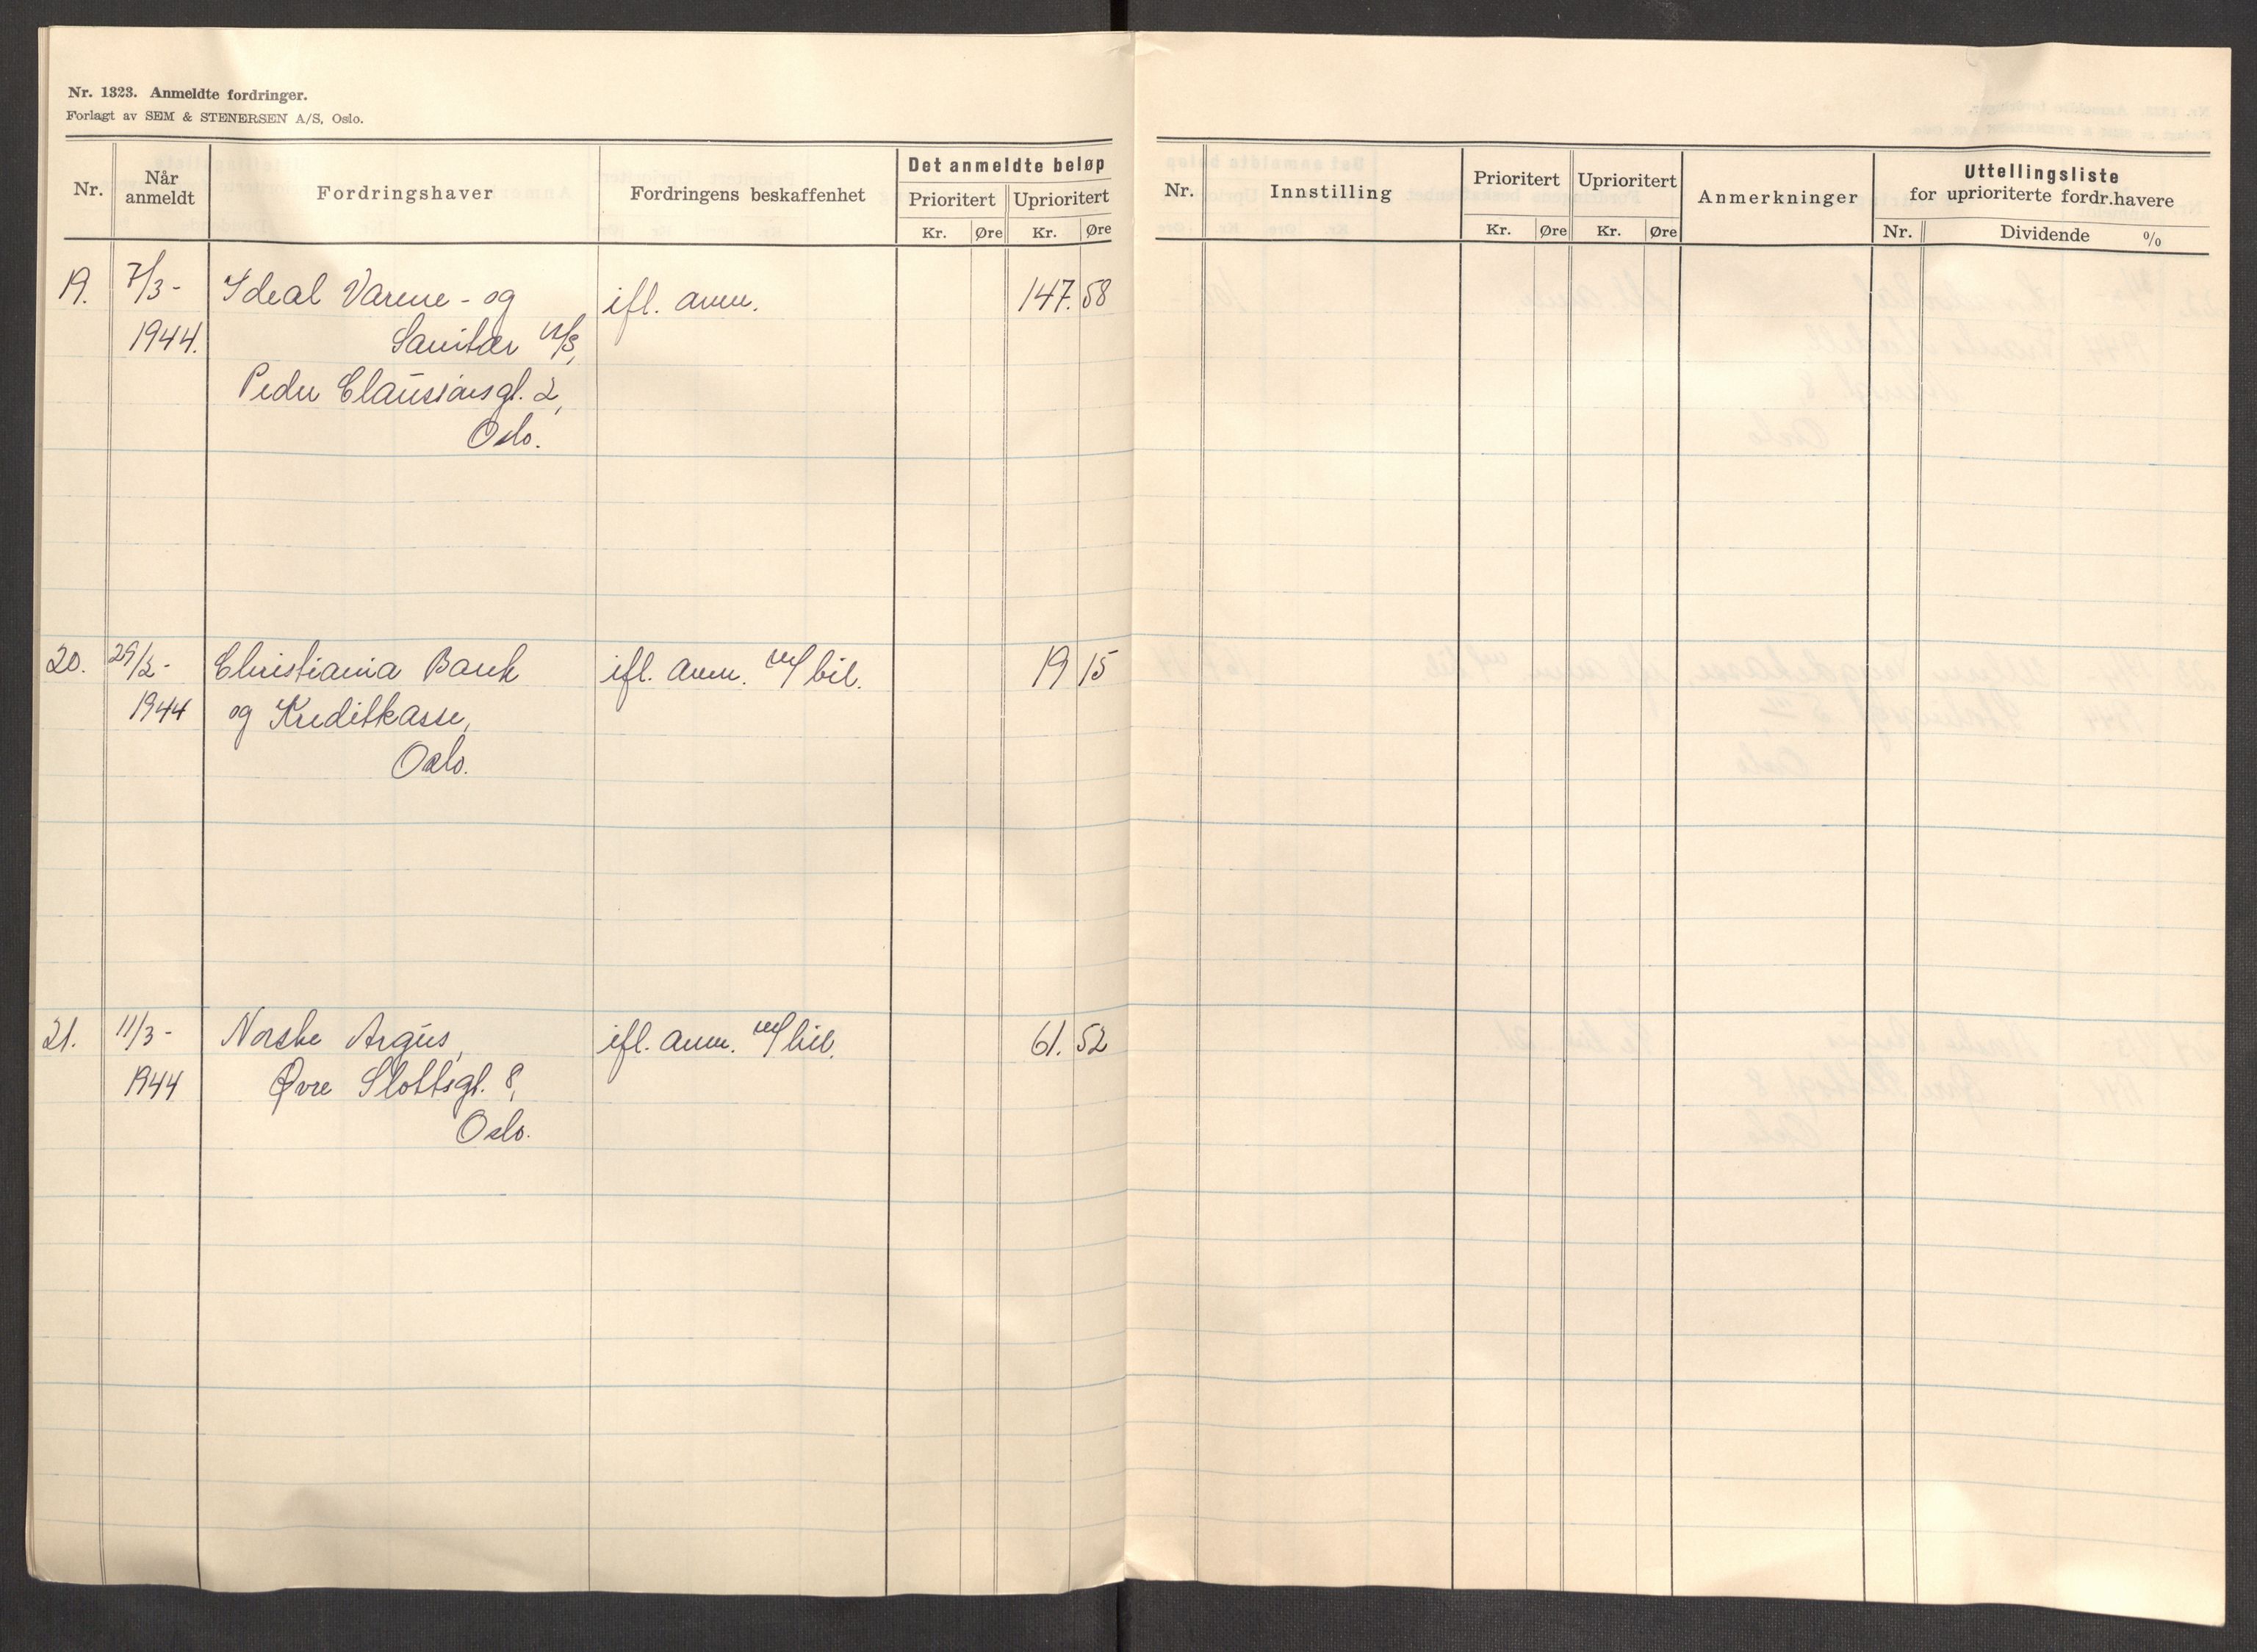 Nr. 1323. Anmeldte fordringer.
Forlagt av SEM & STENERSEN A/S, Oslo.
Nr.
Når anmeldt
Fordringshaver
Fordringens beskaffenhet
Det anmeldte beløp
Prioritert
Uprioritert
Kr. Øre Kr. Øre
19. 7/3- Ideal Varme- og ifl. anm. 147.58
1944. Sanitær A/S,
Peder Claussønsgt. 2,
Oslo.
20. 29/2- Christiania Bank ifl. anm. m/ bil. 19 15
1944 og Kreditkasse,
Oslo.
21. 11/3- Norske Argus, ifl. anm. m/ bil. 61.52
1944 Øvre Slottsgt. 8,
Oslo.
Nr.
Innstilling
Prioritert
Uprioritert
Kr. Øre Kr. Øre
Anmerkninger
Uttellingsliste
for uprioriterte fordr.havere
Nr. Dividende %